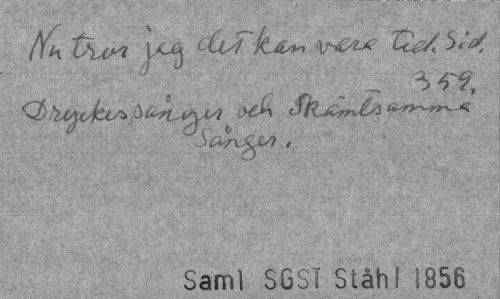 Nu tror jag det kan vara tid. Sid.
359.
Dryckessånger och Skämtsamma
Sånger.
Saml SGST Ståhl 1856